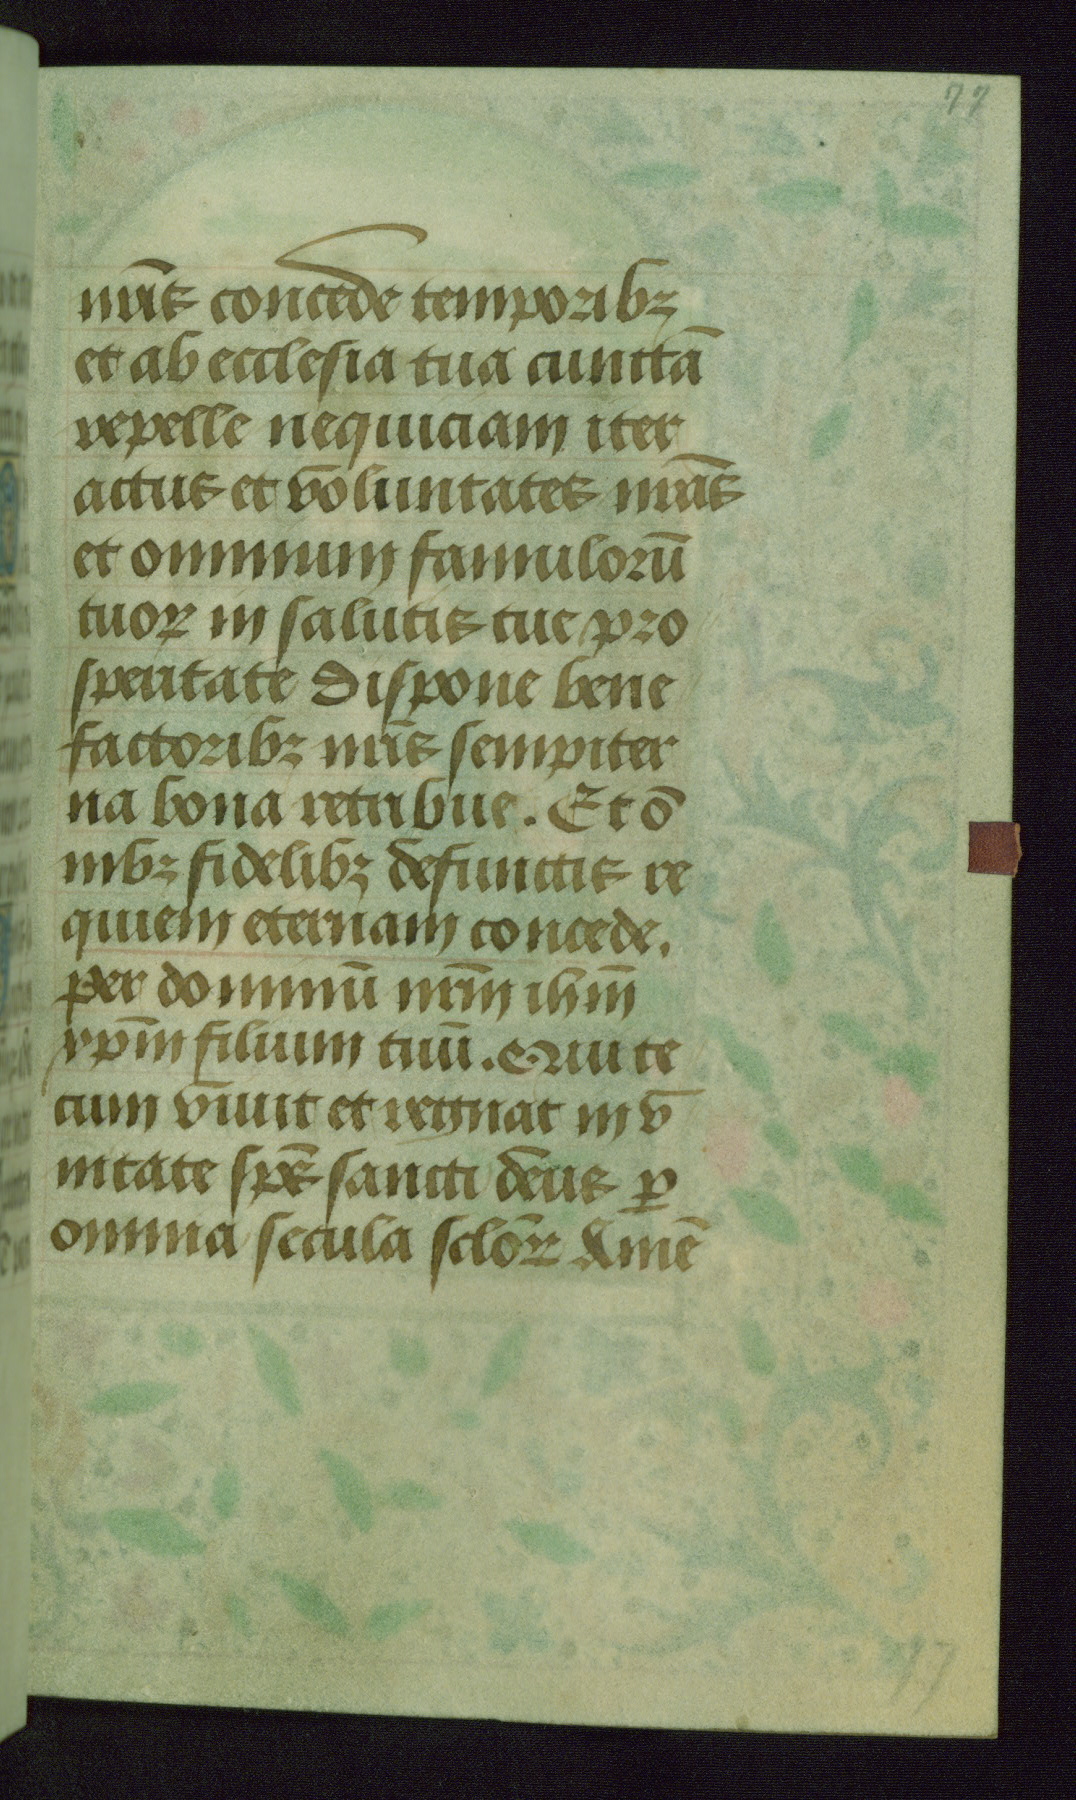 77
nr̄is concede temporibꝫ
et ab ecclesia tua cunctā
repelle nequiciam iter
actus et voluntates nr̄as
et omnium famulorū
tuoꝝ in salutis tue pro
speritate dispone bene
factoribꝫ nr̄is sempiter
na bona retribue. Et ō
nibꝫ fidelibꝫ defunctis re
quiem eternam concede.
per dominū nr̄m ihm̄
xp̄m filium tuū. Qui te
cum viuit et regnat in v
nitate sp̄s sancti deus ꝑ
omnia secula sc̄loꝝ Amē
77